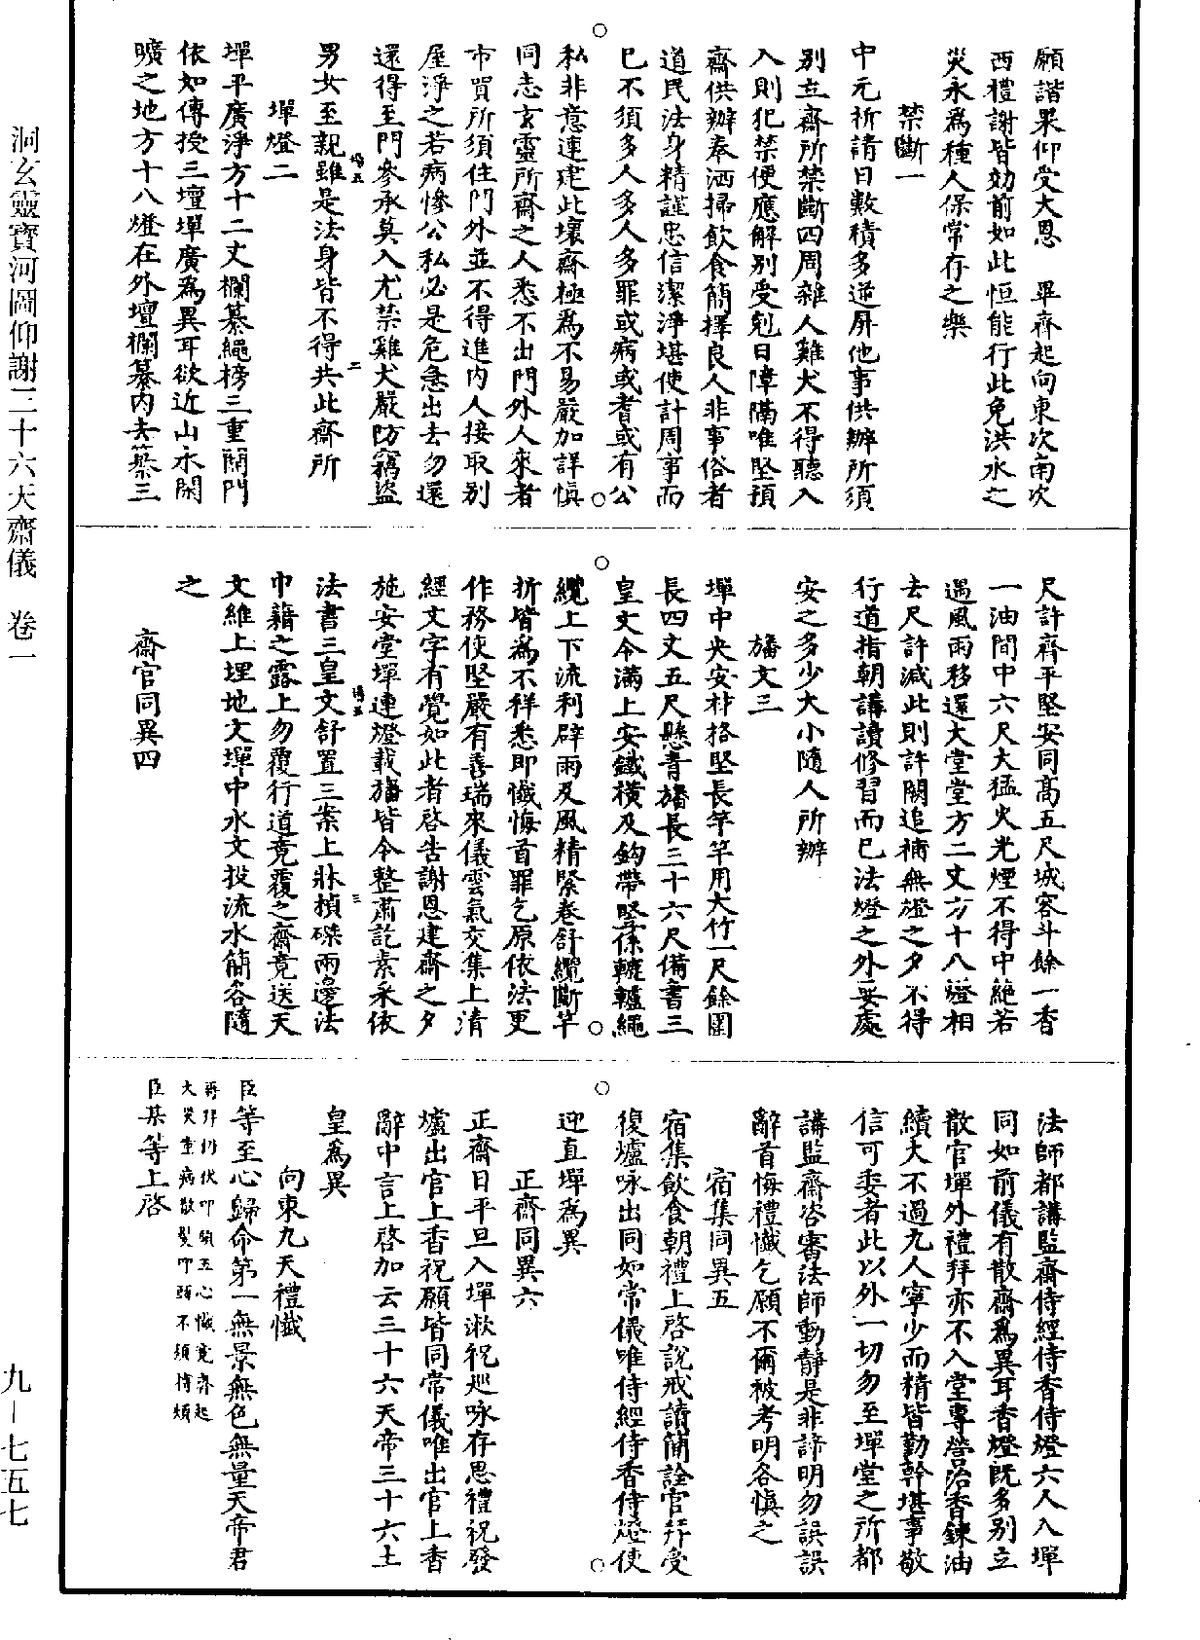 願諧果仰受大恩　畢齊起向東次南次
西禮謝皆効前如此恒能行此免洪水之
災永為種人保常存之樂
禁斷一
中元祈請日數積多逆屏他事供辦所須
別立齋所禁斷四周雜人雞犬不得聽入
入則犯禁便應解別受剋日障隔唯堅預
齋供辦奉洒掃飲食簡擇良人非事俗者
道民法身精謹忠信潔淨堪使計周事而
已不須多人多人多罪或病或耆或有公
私非意連建此壞齋極為不易嚴加詳慎
同志玄靈所齋之人悉不出門外人來者
市買所須住門外並不得進内人接取別
屋淨之若病慘公私必是危急出去勿還
還得至門參承莫入尤禁雞犬嚴防竊盜
男女至親雖是法身皆不得共此齋所
墠燈二
墠平廣淨方十二丈欄纂繩榜三重開門
依如傳授三壇墠廣為異耳欲近山水閑
曠之地方十八燈在外壇欄纂内去纂三
尺許齊平堅安同高五尺城容斗餘一香
一油間中六尺大猛火光煙不得中絶若
遇風雨移還大堂堂方二丈方十八燈相
去尺許減此則許闕追補無燈之夕不得
行道指朝講讀修習而已法燈之外要處
安之多少大小隨人所辦
旛文三
墠中央安材格堅長竿竿用大竹一尺餘圍
長四丈五尺懸青旛長三十六尺備書三
皇文令滿上安鐵橫及鈎帶堅係轆轤繩
纜上下流利辟雨及風精緊卷舒纜斷竿
折皆為不祥悉即懺悔首罪乞原依法更
作務使堅嚴有善瑞來儀雲氣交集上清
經文字有覺如此者啓告謝恩建齋之夕
施安堂墠連燈載旛皆令整肅訖素采依
法書三皇文舒置三案上牀楨磔兩邊法
巾籍之露上勿覆行道竟覆之齋竟送天
文維上埋地文墠中水文投流水簡各隨
之
齋官同異四
法師都講監齋侍經侍香侍燈六人入墠
同如前儀有散齋為異耳香燈既多別立
散官墠外禮拜亦不入堂專營治香鍊油
續大不過九人寧少而精皆勤幹堪事敬
信可委者此以外一切勿至墠堂之所都
講監齋咨審法師動靜是非諦明勿誤誤
辭首悔禮懺乞願不爾被考明各慎之
宿集同異五
宿集飲食朝禮上啓說戒請簡詮官并受
復爐咏出同如常儀唯侍經侍香侍燈使
迎直墠為異
正齋同異六
正齋日平旦入墠漱祝巡咏存思禮祝發
爐出官上香祝願皆同常儀唯出官上香
辭中言上啓加云三十六天帝三十六土
皇為異
向東九天禮懺
臣等至心歸命第一無景無色無量天帝君
再拜仍伏叩頭五心懺竟齊起
大災重病散髮叩頭不須搏頰
臣某等上啓
洞玄靈寶河圖仰謝三十六天齋儀　卷一
九－七五七